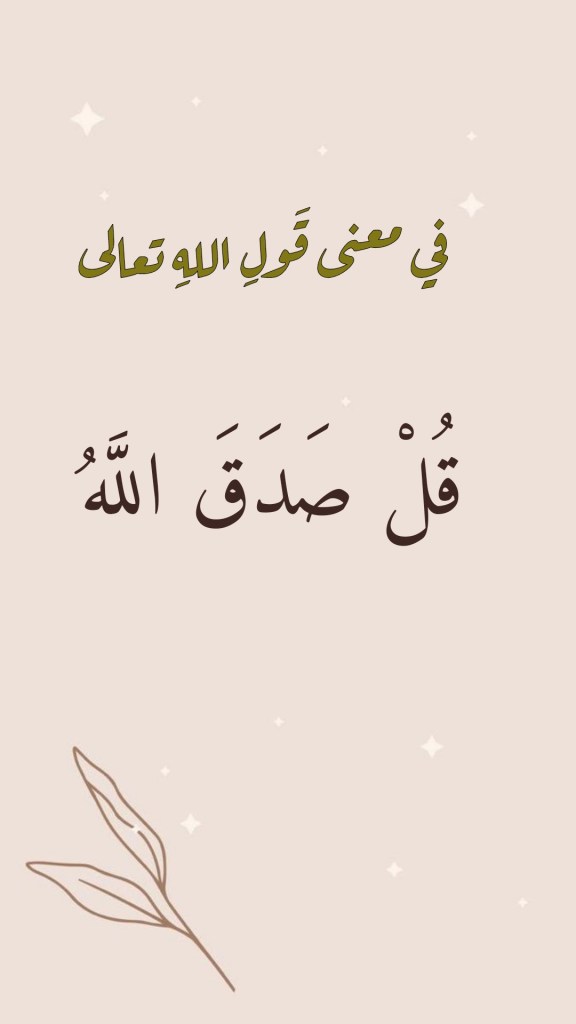 في معنى قَولِ اللهِ تعالى
قُلْ صَدَقَ اللَّهُ